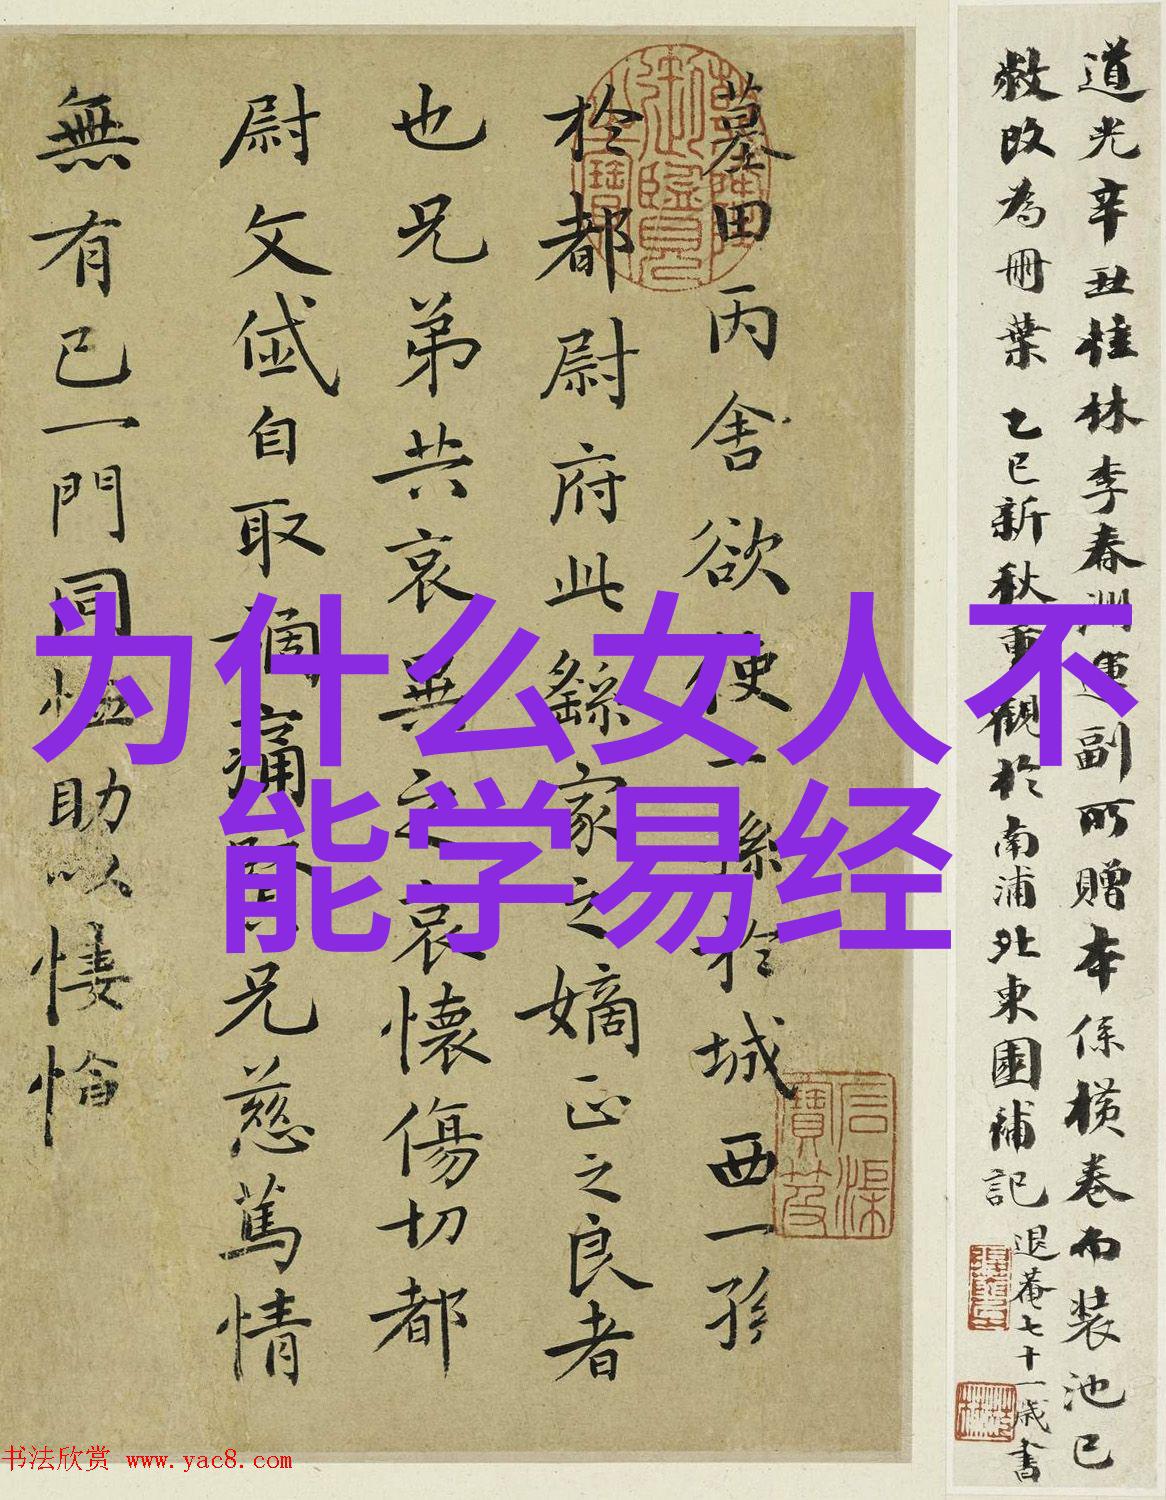 为什么女人不
能学易经
道光辛丑桂林李春洲運副所贈本係横卷而装池已
敝改為冊葉乙巳新秋重觀於南浦北東園補記退菴七十一歲書
墓田丙舍欲使一孫於城西一孫
於都尉府此繇家之嫡正之良者
也兄弟共哀異之哀懷傷切都
尉文岱自取禍痛賢兄慈篤情
無有已一門同恤助以悽愴
书法欣赏 www.yac8.com